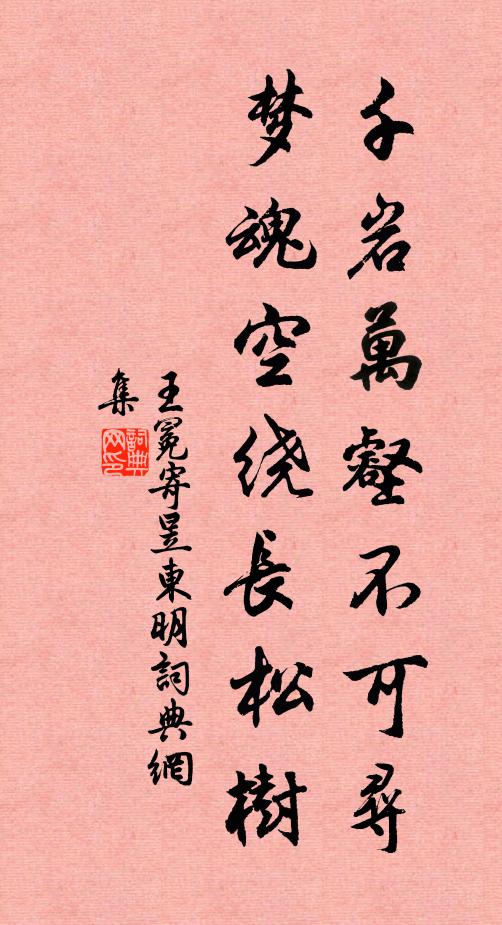 千岩萬壑不可尋
梦魂空绕長松樹
王冕寄昱東明詞典網
集
詞典网印